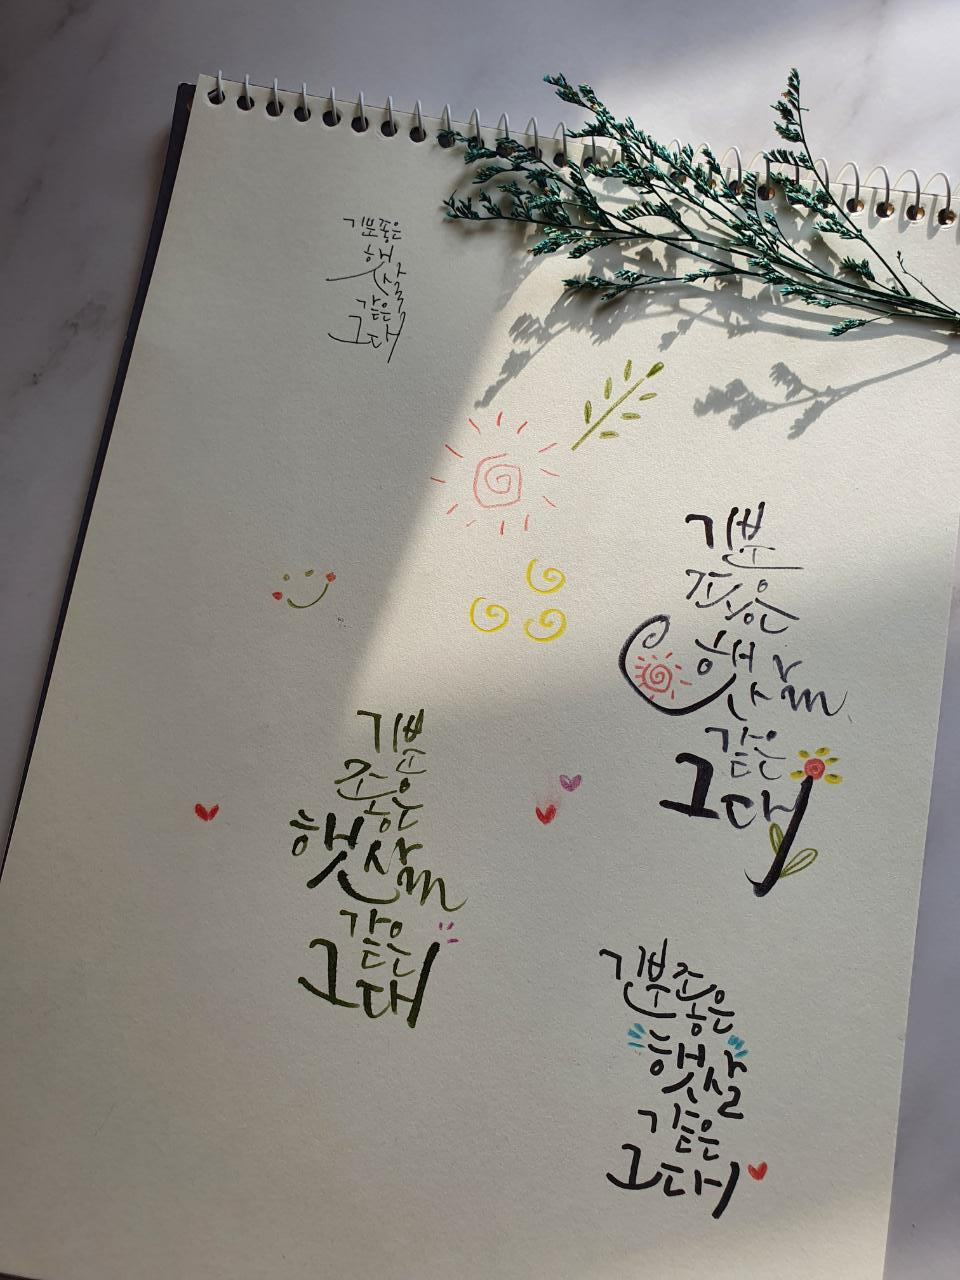 기분좋은
햇살
같은
그대
기분
좋은
햇살
같은
그대
기분
좋은
햇살
같은
그대
기분좋은
햇살
같은
그대